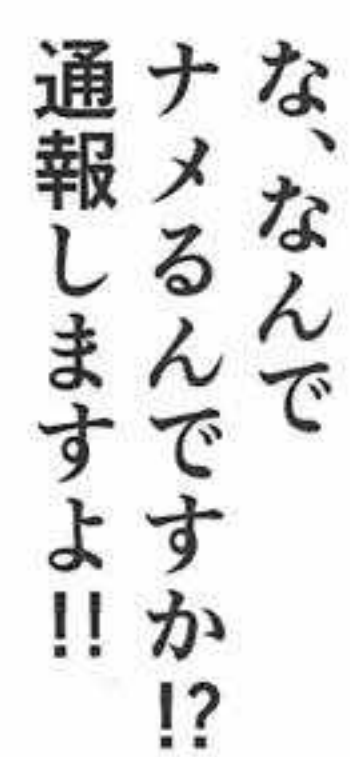 な、なんで
ナメるんですか!?
通報しますよ!!